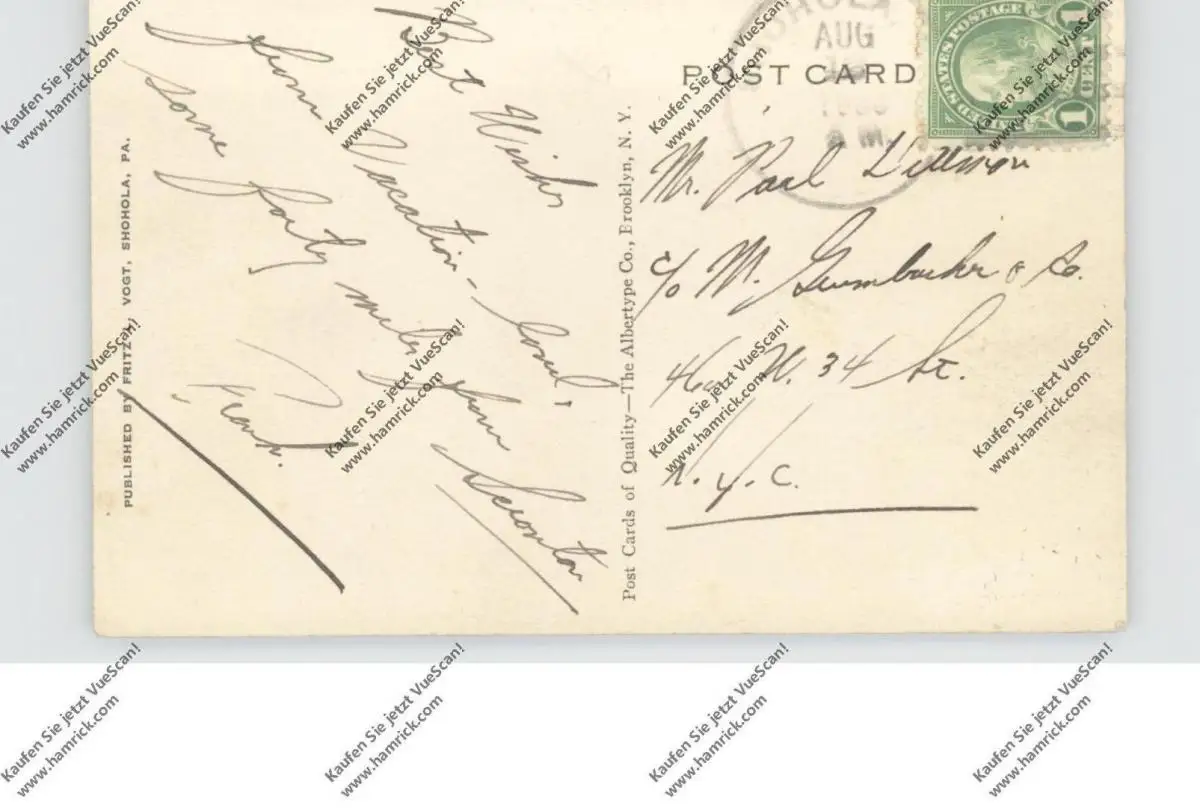 Best Wishes
from Vacation - land.
some forty miles from Scranton
Frank.
PUBLISHED BY FRITZ A. VOGT, SHOHOLA, PA.
Post Cards of Quality—The Albertype Co., Brooklyn, N. Y.
SHOHOLA
AUG
A M.
UNITED STATES POSTAGE
1 CENT 1
POST CARD
Mr. Paul
c/o M. Grumbacher & Co.
460 W. 34 St.
N.Y.C.
Kaufen Sie jetzt VueScan!
www.hamrick.com
Kaufen Sie jetzt VueScan!
www.hamrick.com
Kaufen Sie jetzt VueScan!
www.hamrick.com
Kaufen Sie jetzt VueScan!
www.hamrick.com
Kaufen Sie jetzt VueScan!
www.hamrick.com
Kaufen Sie jetzt VueScan!
www.hamrick.com
Kaufen Sie jetzt VueScan!
www.hamrick.com
Kaufen Sie jetzt VueScan!
www.hamrick.com
Kaufen Sie jetzt VueScan!
www.hamrick.com
Kaufen Sie jetzt VueScan!
www.hamrick.com
Kaufen Sie jetzt VueScan!
www.hamrick.com
Kaufen Sie jetzt VueScan!
www.hamrick.com